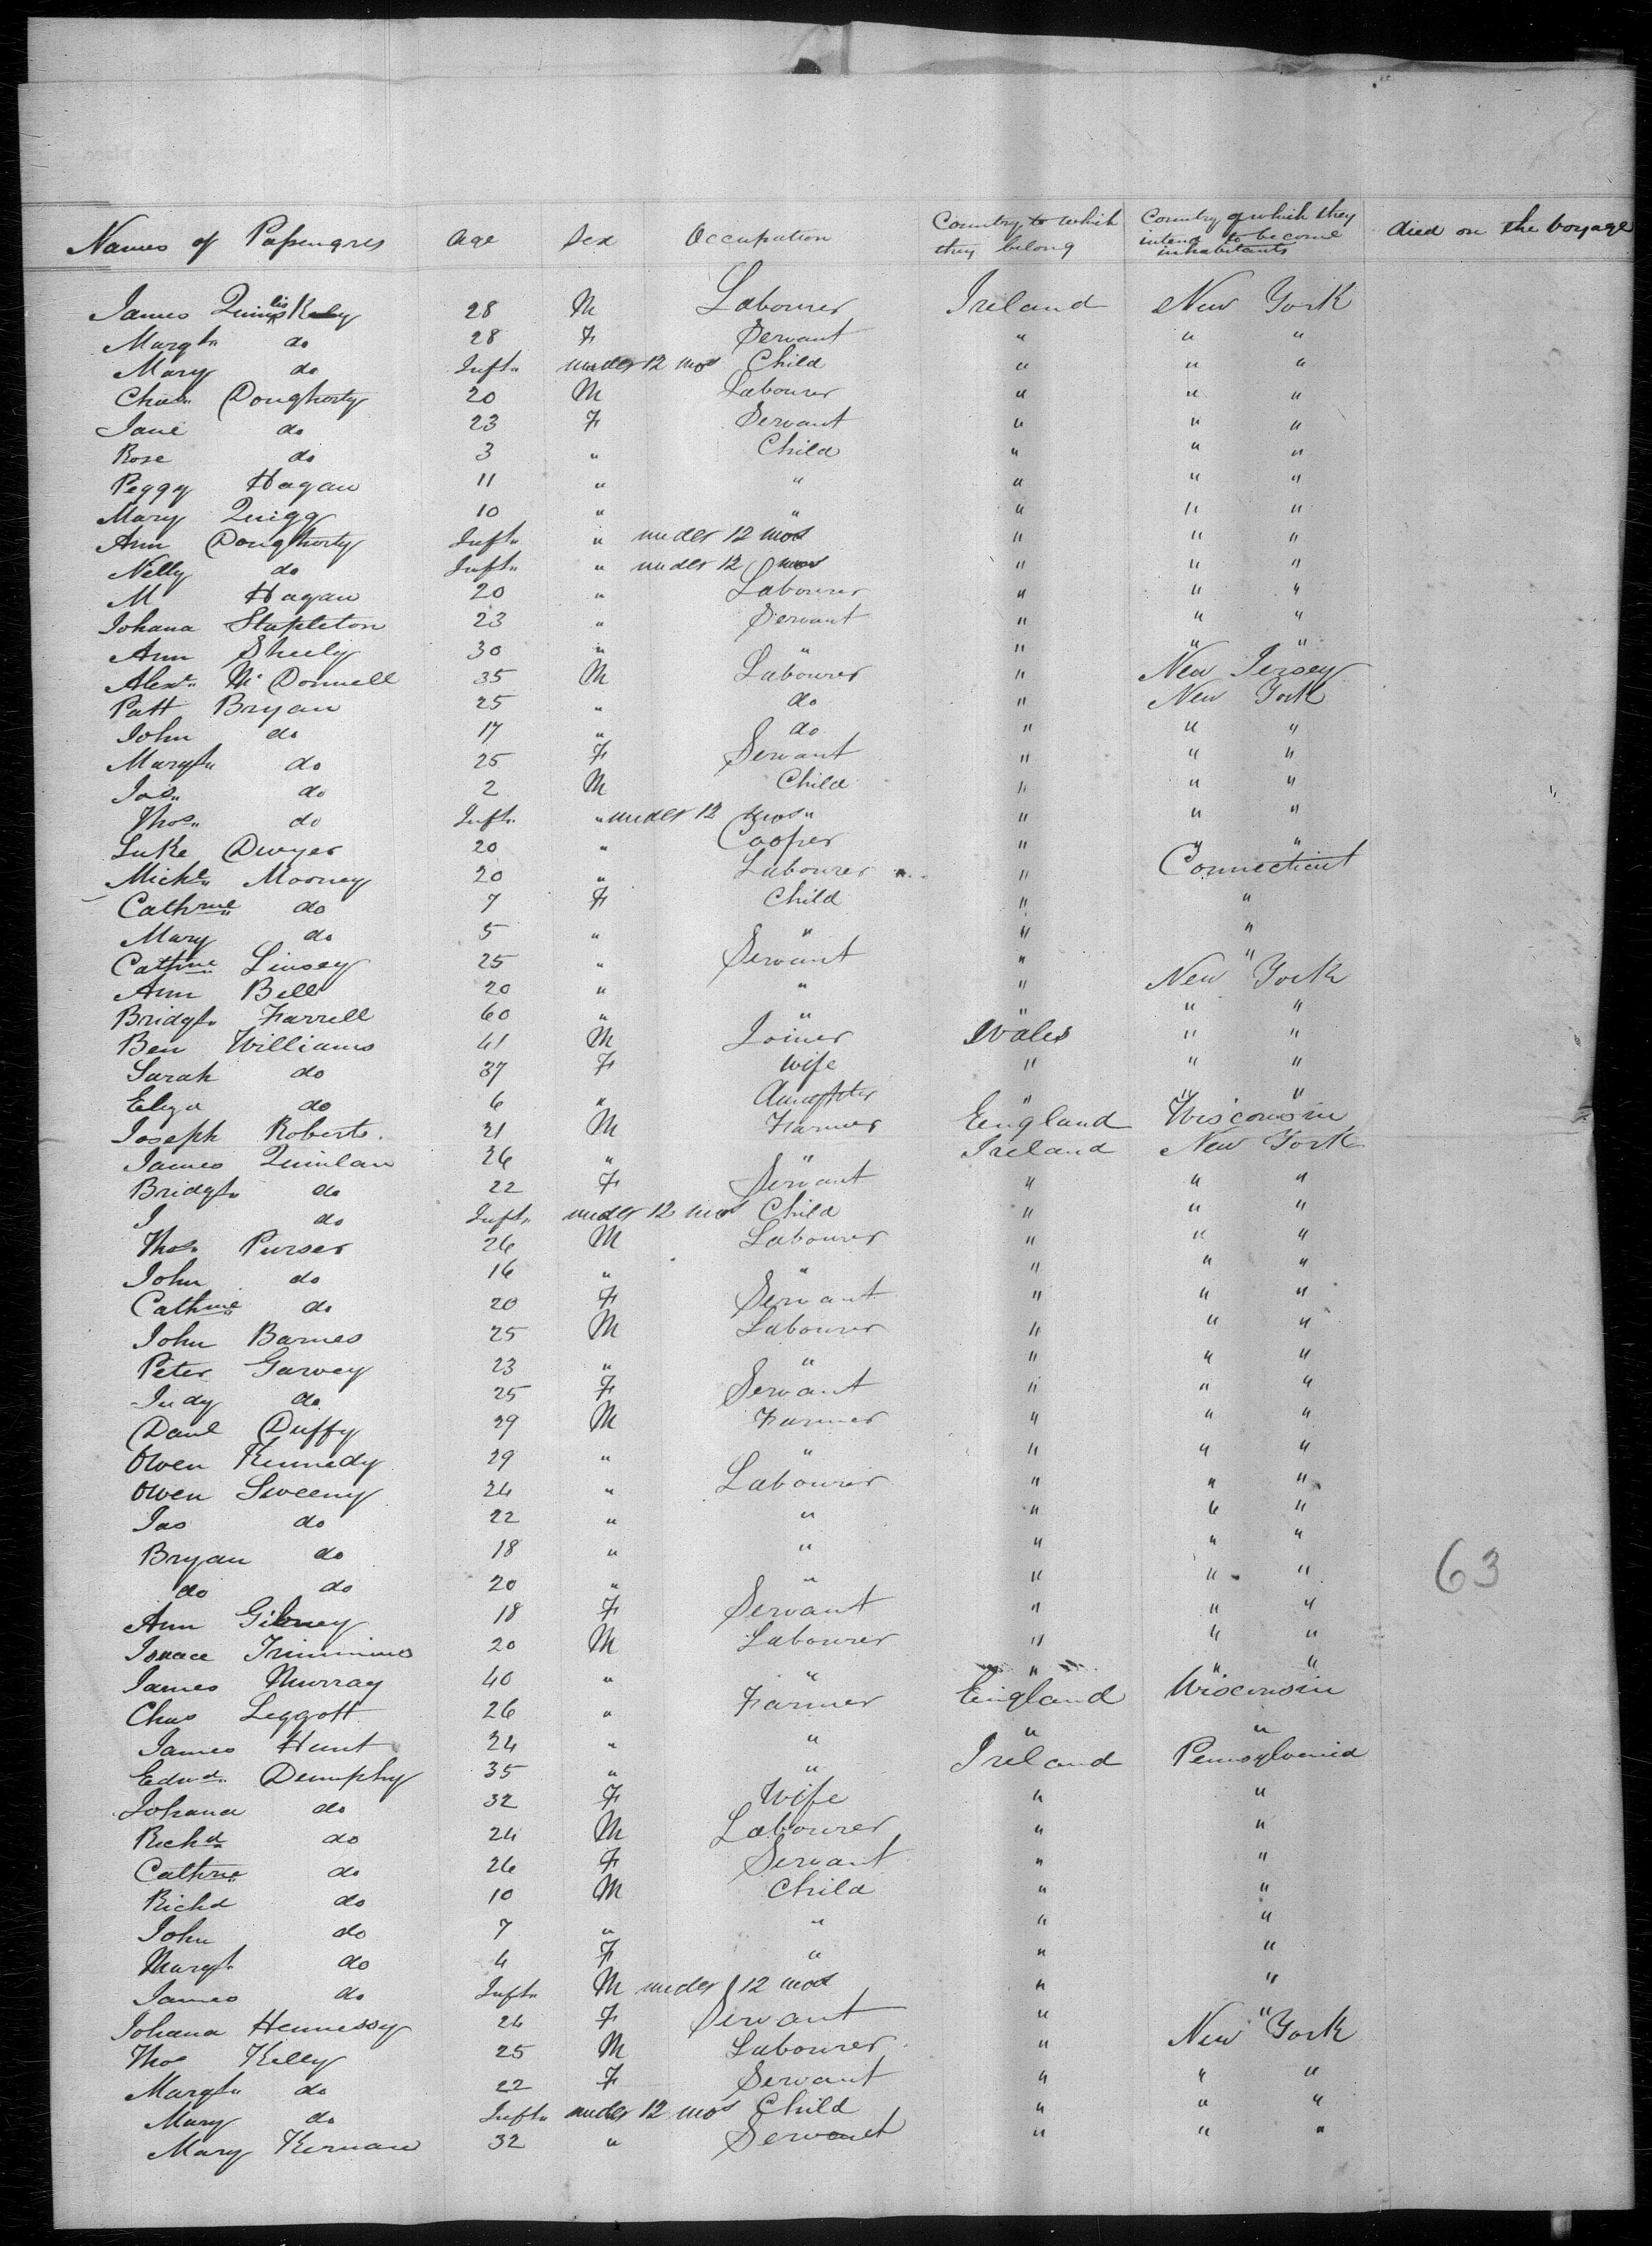 Names of Passengers Age Sex Occupation Country to which they belong Country of which they intend to become inhabitants died on the voyage
James 28 M Labourer Ireland New York
Margt do 28 F Servant " " "
Mary do Inft under 12 mos Child " " "
Chas Doughorty 20 M Labourer " " "
Jane do 23 F Servant " " "
Rose do 3 " Child " " "
Peggy Hagan 11 " " " " "
Mary Quigg 10 " " " " "
Ann Doughorty Inft " under 12 mos " " "
Nelly do Inft " under 12 mos " " "
M Hagan 20 " Labourer " " "
Johana Stapleton 23 " Servant " " "
Ann Sheely 30 " " " " "
Alexr Mc Donnell 35 M Labourer " New Jersey
Patt Bryan 25 " do " New York
John do 17 " do " " "
Margt do 25 F Servant " " "
Jas do 2 M Child " " "
Thos do Inft " under 12 mos " " "
Luke Dwyer 20 " Cooper " " "
Michl Mooney 20 " Labourer " Connecticut
Cathrne do 7 F Child " "
Mary do 5 " " " "
Cathne Linsey 25 " Servant " "
Ann Bell 20 " " " New York
Bridgt Farrell 60 " " " " "
Ben Williams 41 M Joiner Wales " "
Sarah do 37 F Wife " " "
Eliza do 6 " daughter " " "
Joseph Roberts 21 M Farmer England Wisconsin
James Quinlan 26 " " Ireland New York
Bridgt do 22 F Servant " " "
J do Inft under 12 mos Child " " "
Thos Purser 26 M Labourer " " "
John do 16 " " " " "
Cathne do 20 F Servant " " "
John Barnes 25 M Labourer " " "
Peter Garvey 23 " " " " "
Judy do 25 F Servant " " "
Danl Duffy 29 M Farmer " " "
Owen Kennedy 29 " " " " "
Owen Sweeny 24 " Labourer " " "
Jas do 22 " " " " "
Bryan do 18 " " " " "
do do 20 " " " " "
63
Ann Gibney 18 F Servant " " "
20 M Labourer " " "
James Murray 40 " " " " "
Chas Leggott 26 " Farmer England Wisconsin
James Hunt 24 " " " "
Edwd Dumphy 35 " " Ireland Pennsylvania
Johana do 32 F Wife " "
Richd do 24 M Labourer " "
Cathne do 26 F Servant " "
Richd do 10 M Child " "
John do 7 " " " "
Margt do 4 F " " "
James do Inft M under 12 mos " "
Johana Hennessy 24 F Servant " "
Thos Kelly 25 M Labourer " New York
Margt do 22 F Servant " " "
Mary do Inft under 12 mos Child " " "
Mary Kernan 32 " Servant " " "